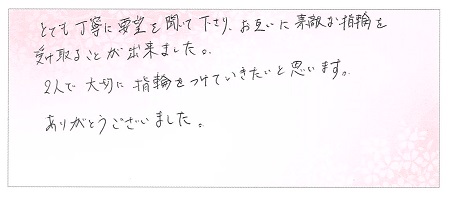 とても丁寧に要望を聞いて下さり、お互いに素敵な指輪を
受け取ることが出来ました。
2人で大切に指輪をつけていきたいと思います。
ありがとうございました。